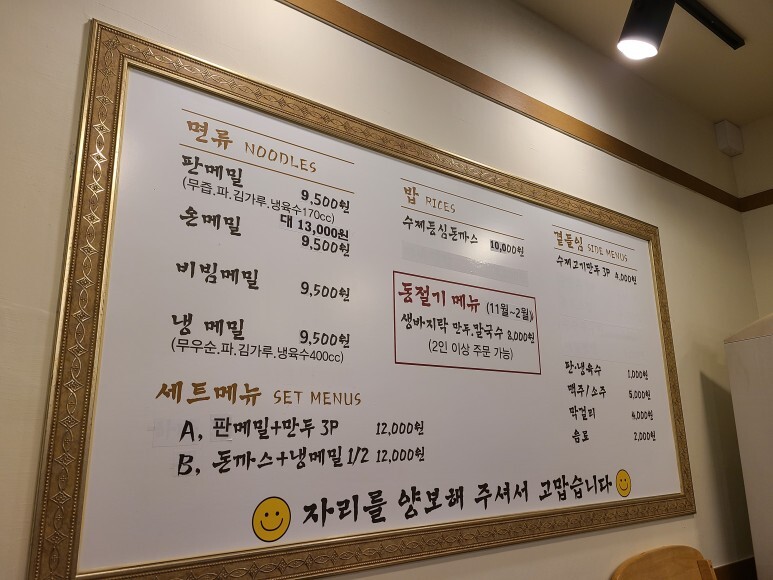 면류 NOODLES
판메밀 9,500원
(무즙.파.김가루.냉육수170cc)
대 13,000원
온메밀 9,500원
비빔메밀 9,500원
냉 메밀 9,500원
(무우순.파.김가루.냉육수400cc)
세트메뉴 SET MENUS
A, 판메밀+만두 3P 12,000원
B, 돈까스+냉메밀 1/2 12,000원
밥 RICES
수제등심돈까스 10,000원
동절기 메뉴 (11월~2월)
생바지락 만두.칼국수 8,000원
(2인 이상 주문 가능)
곁들임 SIDE MENUS
수제고기만두 3P 4,000원
판·냉육수 1,000원
맥주/소주 5,000원
막걸리 4,000원
음료 2,000원
자리를 양보해 주셔서 고맙습니다